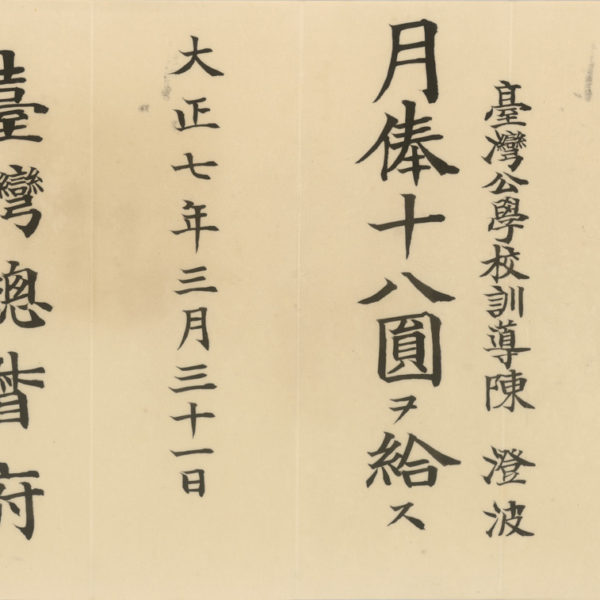 臺灣公學校訓導陳 澄波
月俸十八圓ヲ給ス
大正七年三月三十一日
臺灣總督府